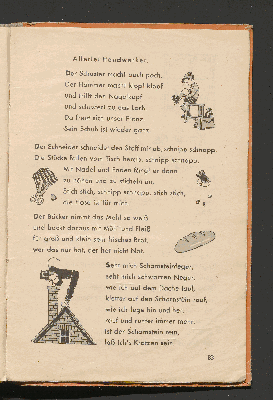 Allerlei Handwerker.
Der Schuster macht auch poch,
Der Hammer macht klopf klopf
und trifft den Nagelkopf
und schwarz zu das Loch
Da freu sich unser Franz
Sein Schuh ist wieder ganz
Der Schneider schneidet den Stoff mit ab, schnipp schnapp.
Die Stücke fallen vom Tisch herab, schnipp schnapp.
Mit Nadel und Faden fängt er dann
zu nähen und zu sticheln an.
Stich stich, schnipp schnapp, stich stich,
die Hose ist für mich
Der Bäcker nimmt das Mehl so weiß
und backt daraus mit Müh und Fleiß
für groß und klein sein frisches Brot,
wer das nur hat, der hat nicht Not.
Seht mich Schornsteinfeger,
seht mich schwarzen Neger,
wie ich auf dem Dache lauf,
klettre auf den Schornstein rauf,
wie ich luge hin und her
rauf und runter immer mehr.
Ist der Schornstein rein,
laß ich's Kratzen sein.
83